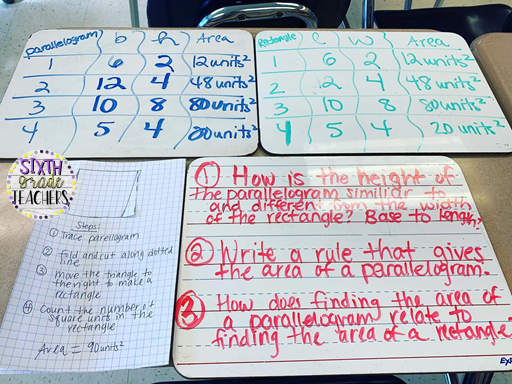 parallelogram b h Area
1 6 2 12 units²
2 12 4 48 units²
3 10 8 80 units²
4 5 4 20 units²
Rectangle l w Area
1 6 2 12 units²
2 12 4 48 units²
3 10 8 80 units²
4 5 4 20 units²
SIXTH
Grade
TEACHERS
Steps:
① Trace parellogram
② fold and cut along dotted
line
③ Move the triangle to
the right to make a
rectangle
④ Count the number of
square units in the
rectangle
Area = 90 units²
① How is the height of
the parallelogram similiar to
and different from the width
of the rectangle? Base to length?
② Write a rule that gives
the area of a parallelogram.
③ How does finding the area of
a parallelogram relate to
finding the area of a rectangle?